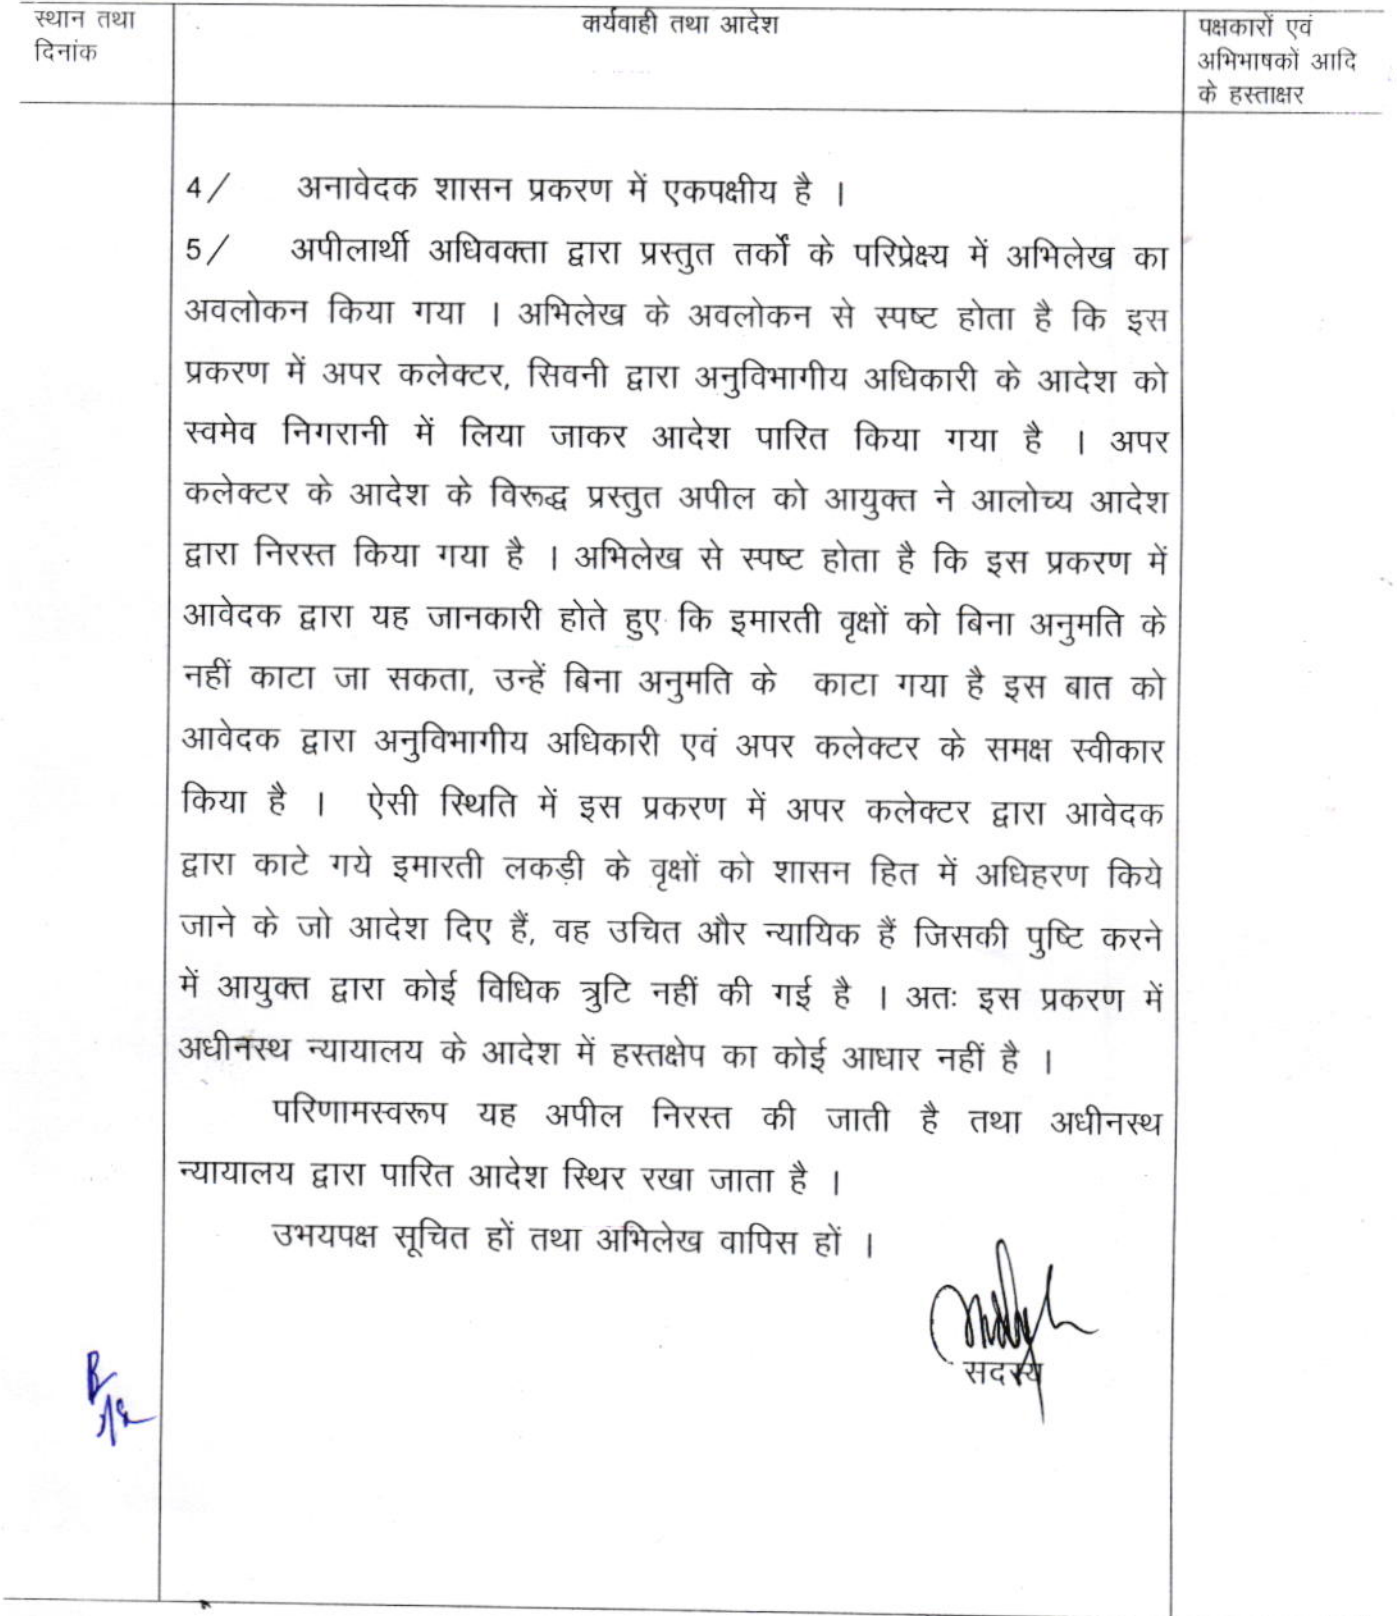 स्थान तथा
दिनांक
कार्यवाही तथा आदेश
पक्षकारों एवं
अभिभाषकों आदि
के हस्ताक्षर
4/ अनावेदक शासन प्रकरण में एकपक्षीय है ।
5/ अपीलार्थी अधिवक्ता द्वारा प्रस्तुत तर्कों के परिप्रेक्ष्य में अभिलेख का
अवलोकन किया गया । अभिलेख के अवलोकन से स्पष्ट होता है कि इस
प्रकरण में अपर कलेक्टर, सिवनी द्वारा अनुविभागीय अधिकारी के आदेश को
स्वमेव निगरानी में लिया जाकर आदेश पारित किया गया है । अपर
कलेक्टर के आदेश के विरूद्ध प्रस्तुत अपील को आयुक्त ने आलोच्य आदेश
द्वारा निरस्त किया गया है । अभिलेख से स्पष्ट होता है कि इस प्रकरण में
आवेदक द्वारा यह जानकारी होते हुए कि इमारती वृक्षों को बिना अनुमति के
नहीं काटा जा सकता, उन्हें बिना अनुमति के काटा गया है इस बात को
आवेदक द्वारा अनुविभागीय अधिकारी एवं अपर कलेक्टर के समक्ष स्वीकार
किया है । ऐसी स्थिति में इस प्रकरण में अपर कलेक्टर द्वारा आवेदक
द्वारा काटे गये इमारती लकड़ी के वृक्षों को शासन हित में अधिहरण किये
जाने के जो आदेश दिए हैं, वह उचित और न्यायिक हैं जिसकी पुष्टि करने
में आयुक्त द्वारा कोई विधिक त्रुटि नहीं की गई है । अतः इस प्रकरण में
अधीनस्थ न्यायालय के आदेश में हस्तक्षेप का कोई आधार नहीं है ।
परिणामस्वरूप यह अपील निरस्त की जाती है तथा अधीनस्थ
न्यायालय द्वारा पारित आदेश स्थिर रखा जाता है ।
उभयपक्ष सूचित हों तथा अभिलेख वापिस हों ।
सदस्य